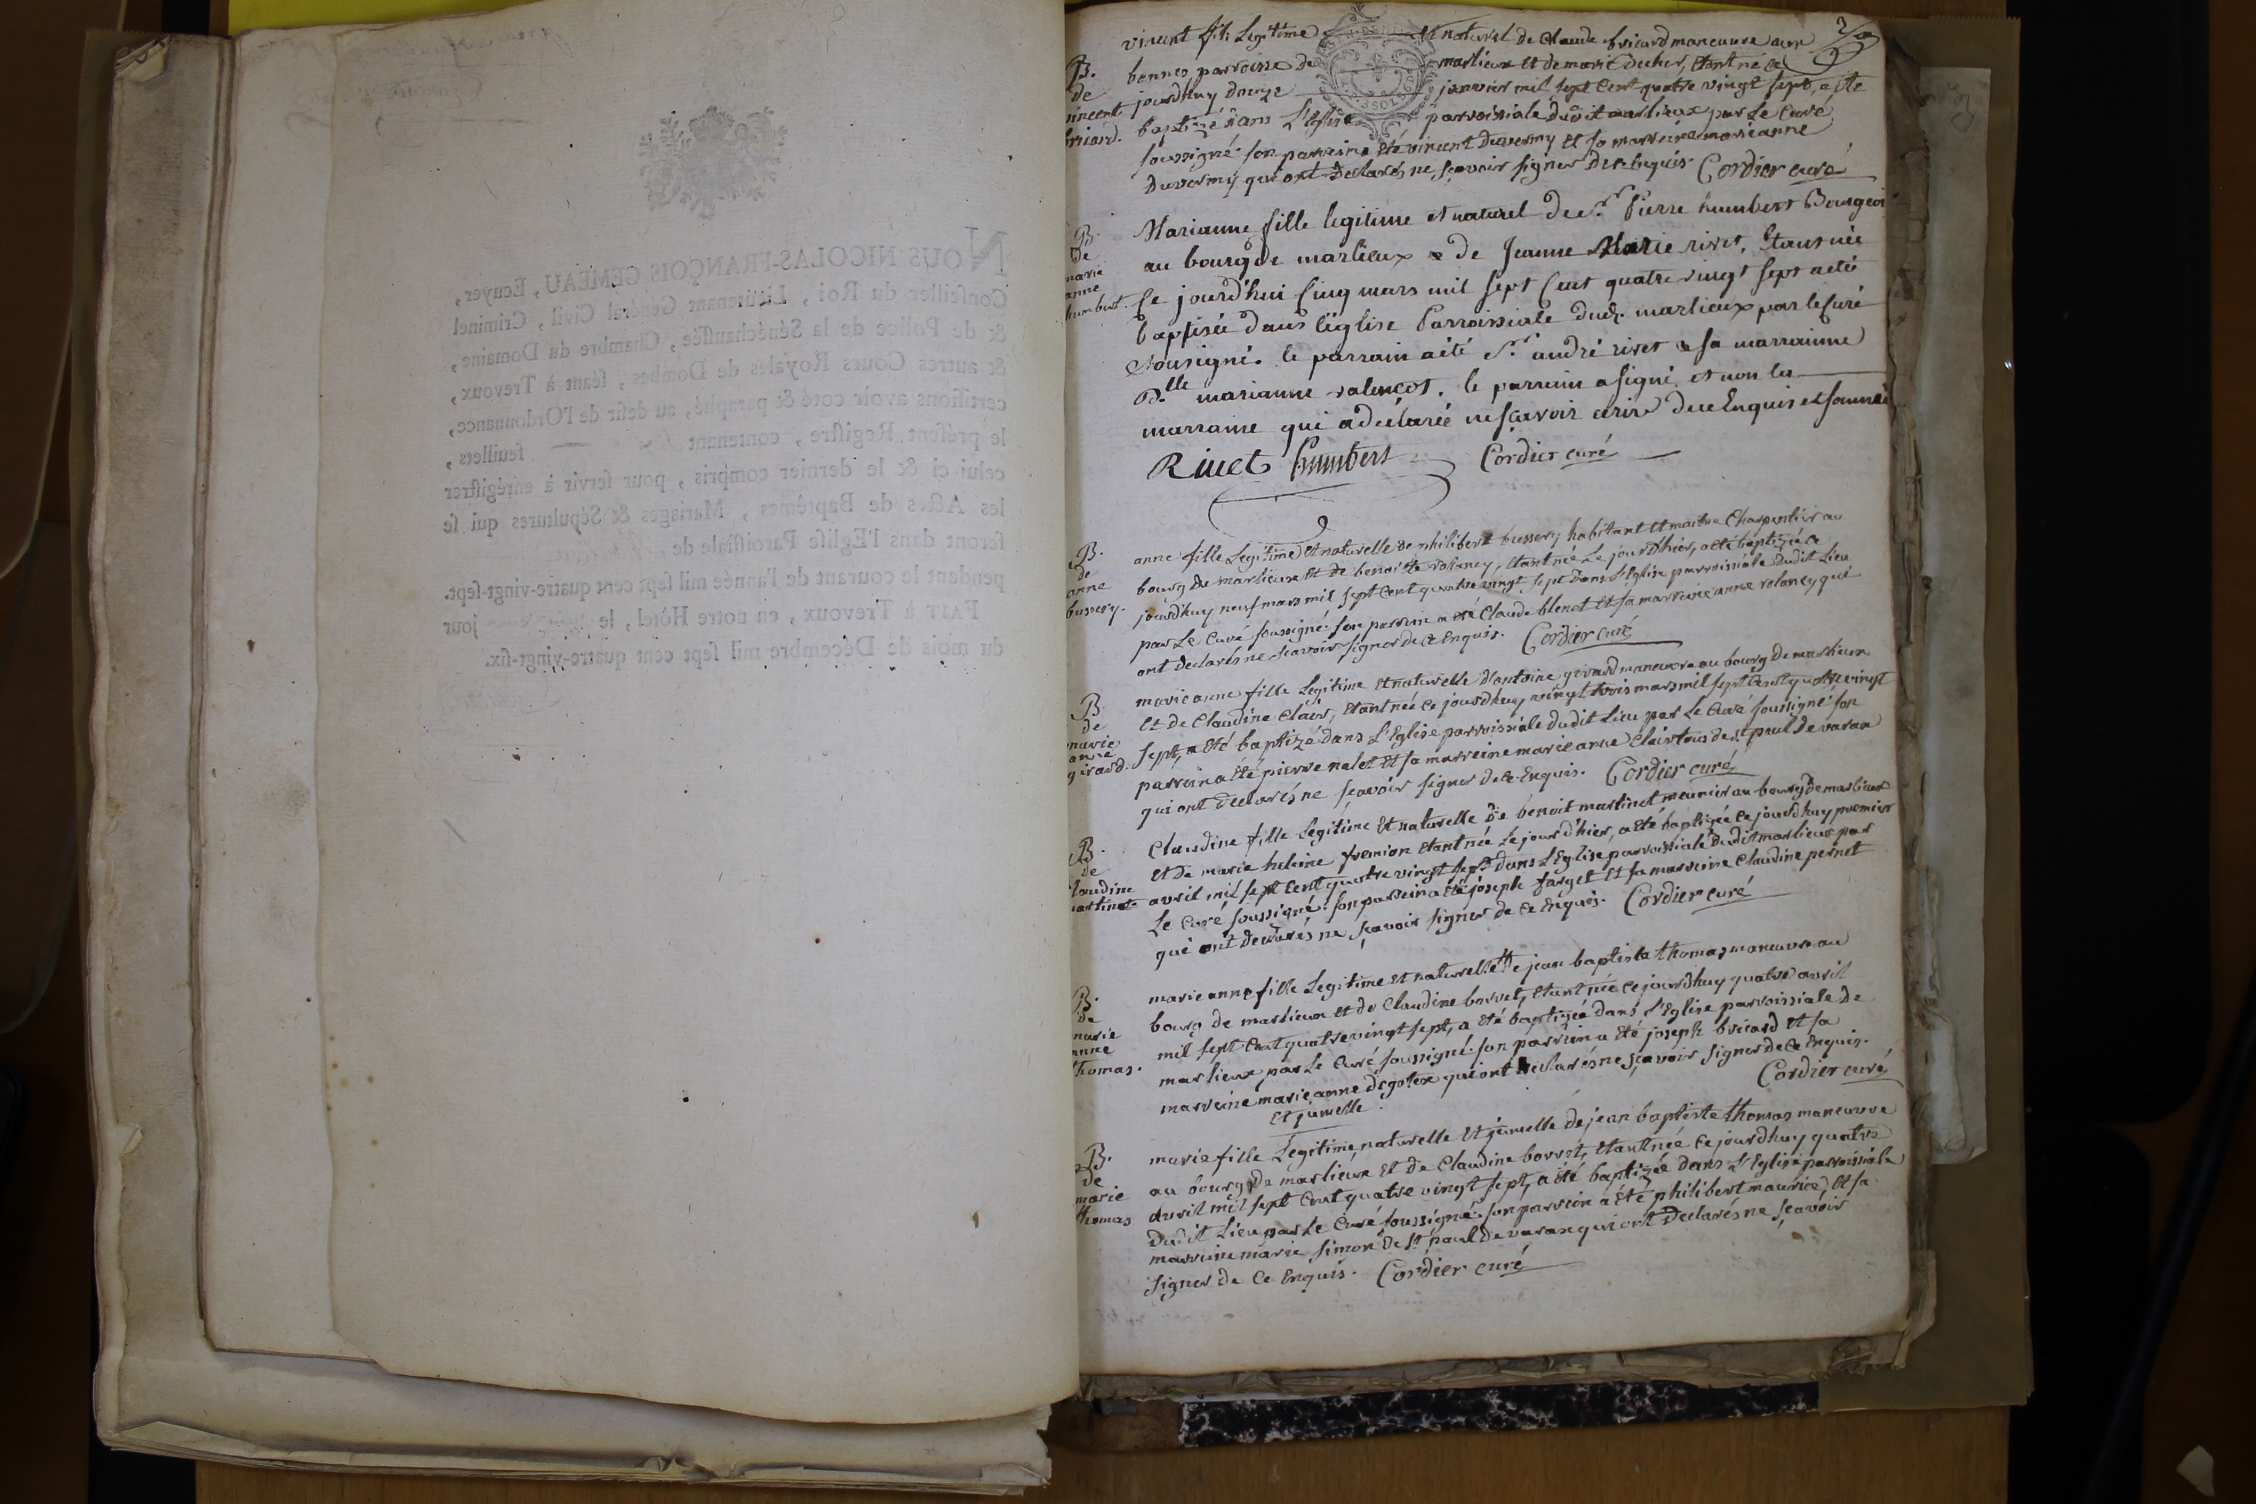 NOUS NICOLAS-FRANÇOIS GEMEAU, Ecuyer,
Conseiller du Roi, Lieutenant Général Civil, Criminel
& de Police de la Sénéchaussée, Chambre du Domaine,
& autres Cours Royales de Dombes, séant à Trevoux,
certifions avoir coté & paraphé, au desir de l'Ordonnance,
le présent Registre, contenant feuillets,
celui-ci & le dernier compris, pour servir à enrégistrer
les Actes de Baptêmes, Mariages & Sépultures qui se
feront dans l'Eglise Paroissiale de
pendant le courant de l'année mil sept cent quatre-vingt-sept.
FAIT à Trevoux, en notre Hôtel, le jour
du mois de Décembre mil sept cent quatre-vingt-six.
B.
de
vincent
bricard.
vincent fils Legitime et naturel de Claude bricard manœuvre aux
bonnes, parroisse de marlieux et de marie ducher, étant né ce
jourdhuy douze janvier mil sept cent quatre vingt sept, a été
baptizé dans L'Eglise parroissiale dudit marlieux par Le Curé
soussigné: son parrein a été vincent duvermy et sa marreine marieanne
duvermy qui ont declarés ne sçavoir signer de ce Enquis. Cordier curé
B.
de
marie
anne
humbert.
Marianne fille legitime et naturel de Sr. Pierre humbert Bourgeoi
au bourg de marlieux & de Jeanne Marie rivet, Etant née
ce jourd'hui cinq mars mil sept cent quatre vingt sept a eté
baptisée dans l'église Parroissiale dud. marlieux par le Curé
sousigné. le parrain a été Sr. andré rivet & sa marrainne
Dlle marianne valencot. le parrain a signé et non la
marraine qui a déclarée ne sçavoir ecrire de ce Enquis et sommée
Rivet humbert Cordier curé
B.
de
anne
bussery.
anne fille Legitime et naturelle de philibert bussery habitant et maitre Charpentier au
bourg de marlieux et de benoitte rolancy, étant née Le jour d'hier, a été baptizée ce
jourdhuy neuf mars mil sept cent quatre vingt sept dans L'Eglise parroissiale dudit Lieu
par Le Curé soussigné: son parrein a été Claude blenet et sa marreine anne rolancy qui
ont declarés ne sçavoir signer de ce Enquis. Cordier curé
B.
de
marie
anne
girard.
marieanne fille Legitime et naturelle d'antoine girard manœuvre au bourg de marlieux
et de Claudine Clair, étant née ce jourdhuy vingt trois mars mil sept cent quatre vingt
sept, a été baptizé dans L'Eglise parroissiale dudit Lieu par Le Curé soussigné: son
parrein a été pierre nalet et sa marreine marieanne Clair tous de st paul de varax
qui ont declarés ne sçavoir signer de ce Enquis. Cordier curé
B.
de
Claudine
martinet
Claudine fille Legitime et naturelle de benoit martinet meunier au bourg de marlieux
et de marie heleine fremion étant née Le jour d'hier, a été baptizée ce jourdhuy premier
avril mil sept cent quatre vingt sept dans L'Eglise parroissiale dudit marlieux par
Le Curé soussigné: son parrein a été joseph farget et sa marreine Claudine pernet
qui ont declarés ne sçavoir signer de ce Enquis. Cordier curé
B.
de
marie
anne
Thomas.
marieanne fille Legitime et naturelle de jean baptiste thomas manœuvre au
bourg de marlieux et de Claudine borret, étant née ce jourdhuy quatre avril
mil sept cent quatre vingt sept, a été baptizée dans L'Eglise parroissiale de
marlieux par Le Curé soussigné: son parrein a été joseph bricard et sa
marreine marieanne degoter qui ont declarés ne sçavoir signer de ce Enquis.
et jumelle. Cordier curé
B.
de
marie
thomas
marie fille Legitime naturelle et jumelle de jean baptiste thomas manœuvre
au bourg de marlieux et de Claudine borret, étant née ce jourdhuy quatre
avril mil sept cent quatre vingt sept, a été baptizée dans L'Eglise parroissiale
dudit Lieu par Le Curé soussigné: son parrein a été philibert maurice, et sa
marreine marie simon de st paul de varax qui ont declarés ne sçavoir
signer de ce Enquis. Cordier curé